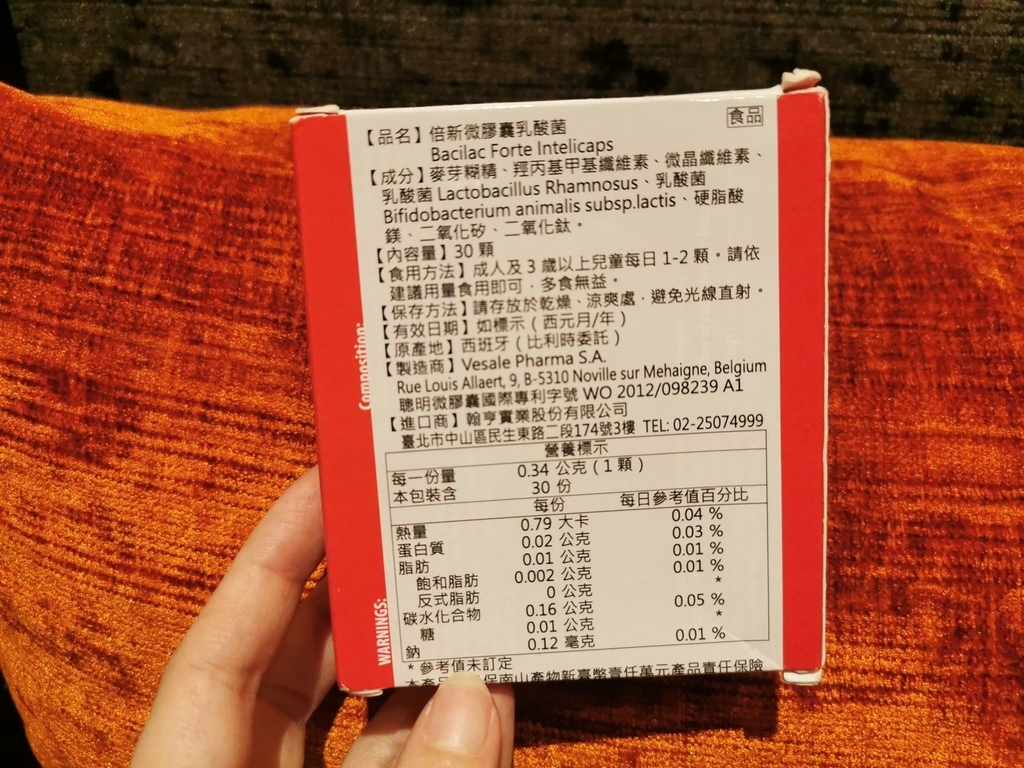 食品
【品名】倍新微膠囊乳酸菌
Bacilac Forte Intelicaps
【成分】麥芽糊精、羥丙基甲基纖維素、微晶纖維素、
乳酸菌 Lactobacillus Rhamnosus、乳酸菌
Bifidobacterium animalis subsp.lactis、硬脂酸
鎂、二氧化矽、二氧化鈦。
【內容量】30 顆
【食用方法】成人及 3 歲以上兒童每日 1-2 顆。請依
建議用量食用即可，多食無益。
【保存方法】請存放於乾燥、涼爽處，避免光線直射。
【有效日期】如標示（西元月/年）
【原產地】西班牙（比利時委託）
【製造商】Vesale Pharma S.A.
Rue Louis Allaert, 9, B-5310 Noville sur Mehaigne, Belgium
聰明微膠囊國際專利字號 WO 2012/098239 A1
【進口商】翰亨實業股份有限公司
臺北市中山區民生東路二段174號3樓 TEL: 02-25074999
營養標示
每一份量 0.34 公克（1 顆）
本包裝含 30 份
每份 每日參考值百分比
熱量 0.79 大卡 0.04 %
蛋白質 0.02 公克 0.03 %
脂肪 0.01 公克 0.01 %
飽和脂肪 0.002 公克 0.01 %
反式脂肪 0 公克 *
碳水化合物 0.16 公克 0.05 %
糖 0.01 公克 *
鈉 0.12 毫克 0.01 %
* 參考值未訂定
本產品 保南山產物新臺幣壹仟萬元產品責任保險
Composition:
WARNINGS: